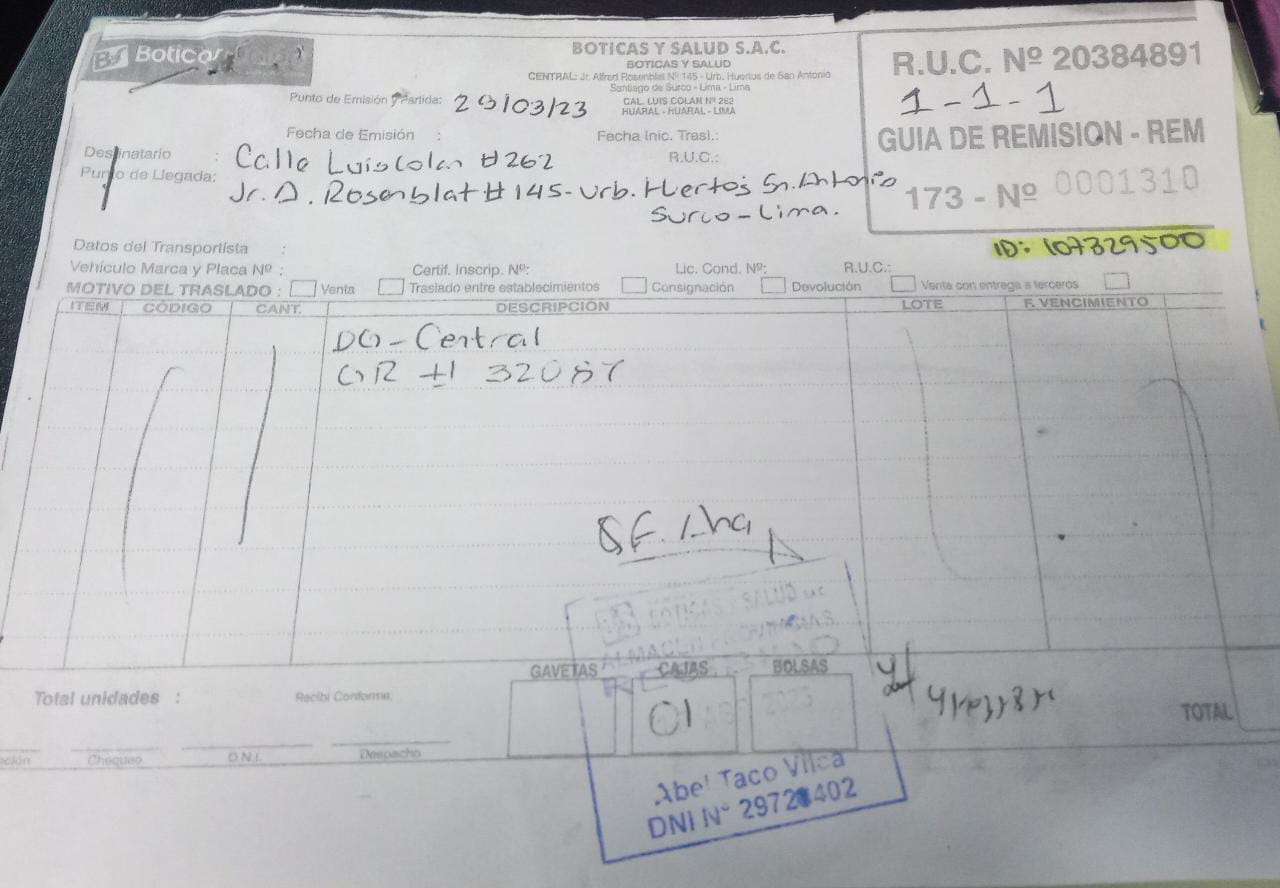 BS Boticas
BOTICAS Y SALUD S.A.C.
BOTICAS Y SALUD
CENTRAL: Jr. Alfred Rosenblat Nº 145 - Urb. Huertos de San Antonio
Santiago de Surco - Lima - Lima
CAL. LUIS COLAN Nº 262
HUARAL - HUARAL - LIMA
R.U.C. Nº 20384891
1-1-1
GUIA DE REMISION - REM
173 - Nº 0001310
ID: 107329500
Punto de Emisión y Partida: 29/03/23
Fecha de Emisión :
Fecha Inic. Trasl.:
Destinatario : Calle Luis Colan #262
R.U.C.:
Punto de Llegada: Jr. A. Rosenblat #145-Urb. Huertos Sn. Antonio
Surco-Lima.
Datos del Transportista :
Vehículo Marca y Placa Nº :
Certif. Inscrip. Nº:
Lic. Cond. Nº:
R.U.C.:
MOTIVO DEL TRASLADO : Venta Traslado entre establecimientos Consignación Devolución Venta con entrega a terceros
ITEM CÓDIGO CANT. DESCRIPCIÓN LOTE F. VENCIMIENTO
DQ-Central
GR # 32087
BOTICAS Y SALUD SAC
ALMACEN PROVINCIAS
GAVETAS CAJAS BOLSAS
01
2023
Total unidades :
Recibí Conforme:
TOTAL
Chequeo D.N.I. Despacho
Abel Taco Vilca